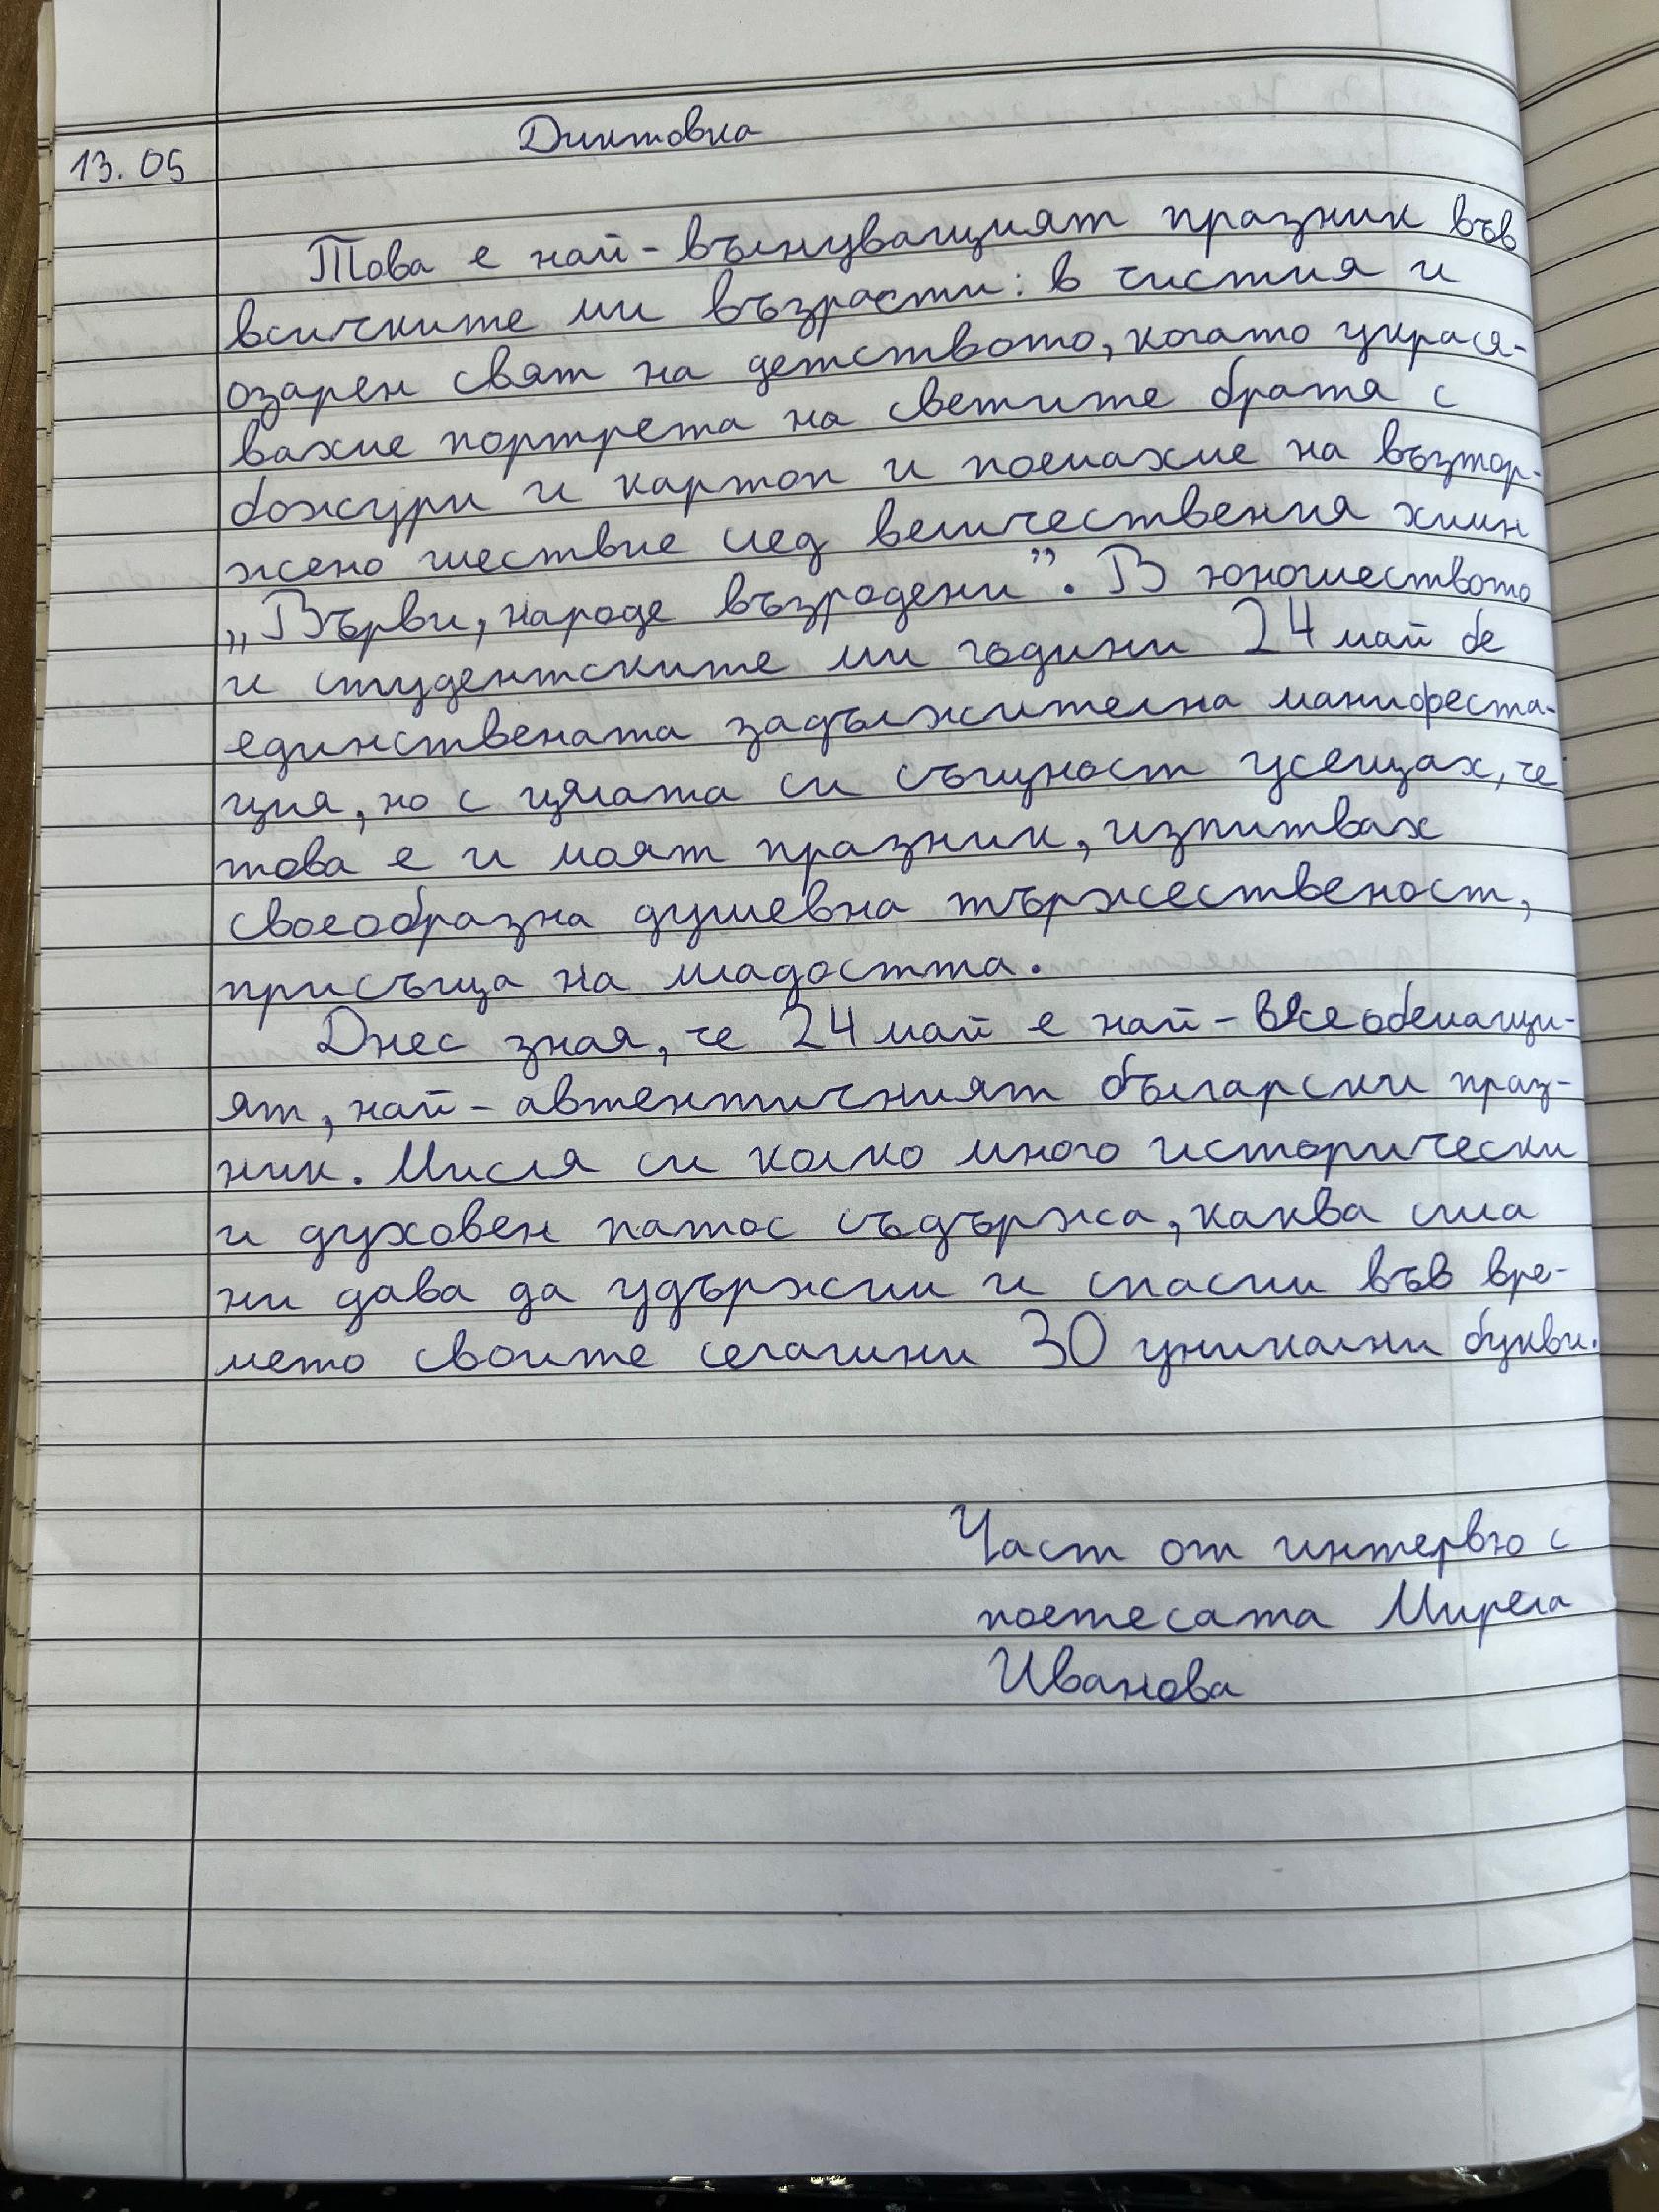 Диктовка
13.05
Това е най-вълнуващият празник във
всичките ми възрасти: в чистия и
озарен свят на детството, когато украся-
вахме портрета на светите братя с
божури и картоп и поемахме на възтор-
жено шествие след величествения химн
„Върви, народе възродени”. В юношеството
и студентските ми години 24 май бе
единствената задължителна манифеста-
ция, но с цялата си същност усещах, че
това е и моят празник, изпитвах
своеобразна душевна тържественост,
присъща на младостта.
Днес зная, че 24 май е най-всеобемащи-
ят, най-автентичният български праз-
ник. Мисля си колко много исторически
и духовен патос съдържа, каква сила
ни дава да удържим и спасим във вре-
мето своите сегашни 30 уникални букви.
Част от интервю с
поетесата Мирела
Иванова